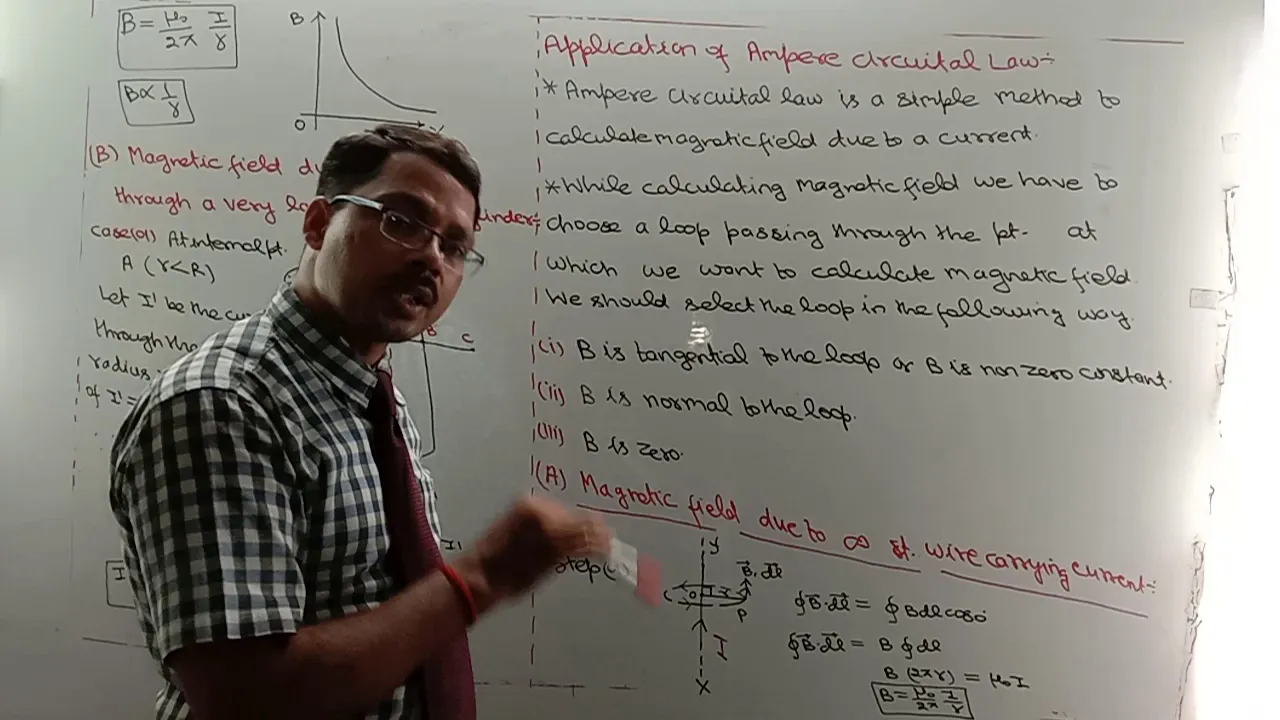 B = μ₀/2π I/r
B ∝ 1/r
B
O
(B) Magnetic field
through a very
case(01) At internal pt.
A (r<R)
Let I' be the
through the
radius
of I' =
B C
I'
I
Application of Ampere Circuital Law:-
* Ampere circuital law is a simple method to
calculate magnetic field due to a current.
* While calculating magnetic field we have to
choose a loop passing through the pt. at
which we want to calculate magnetic field.
We should select the loop in the following way.
(i) B is tangential to the loop or B is non zero constant.
(ii) B is normal to the loop.
(iii) B is zero.
(A) Magnetic field due to ∞ st. wire carrying current:-
Step
Y
B⃗, dl⃗
O r
P
I
X
∮B⃗·dl⃗ = ∮ B dl cos0
∮B⃗·dl⃗ = B ∮ dl
B (2πr) = μ₀I
B = μ₀/2π I/r